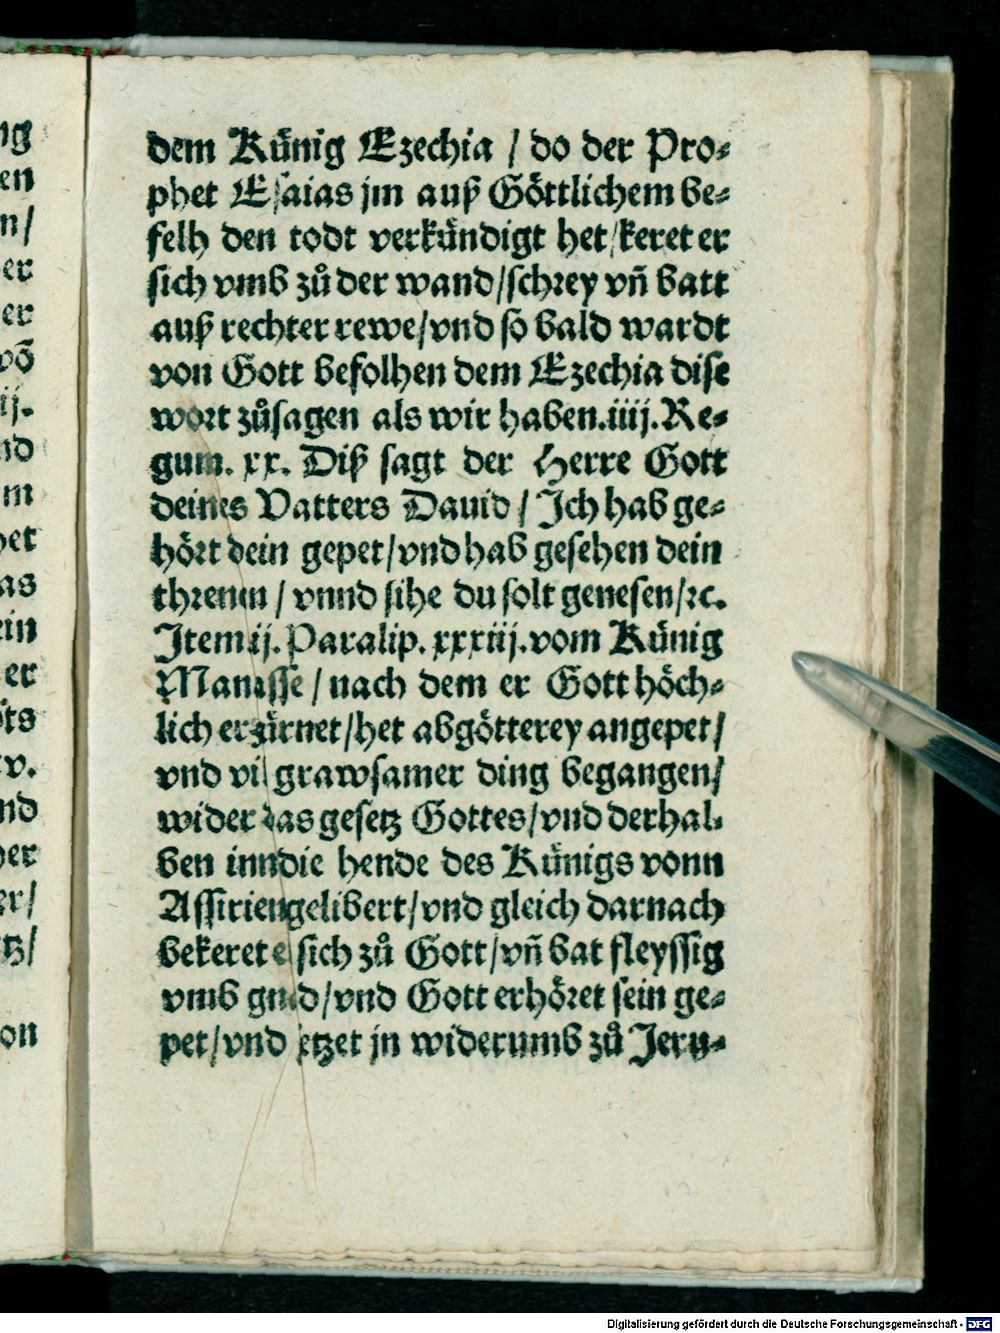 dem Künig Ezechia / do der Pro-
phet Esaias jm auß Göttlichem be-
felh den todt verkündigt het / keret er
sich vmb zů der wand / schrey vñ batt
auß rechter rewe / vnd so bald wardt
von Gott befolhen dem Ezechia dise
wort zůsagen als wir haben .iiij. Re-
gum. xx. Diß sagt der Herre Gott
deines Vatters Dauid / Ich hab ge-
hört dein gepet / vnd hab gesehen dein
threnen / vnnd sihe du solt genesen / ꝛc.
Item ij. Paralip. xxxiij. vom Künig
Manasse / nach dem er Gott höch-
lich erzürnet / het abgötterey angepet /
vnd vil grawsamer ding begangen /
wider das gesetz Gottes / vnd derhal-
ben inn die hende des Künigs vonn
Assirien gelibert / vnd gleich darnach
bekeret er sich zů Gott / vñ bat fleyssig
vmb gnad / vnd Gott erhöret sein ge-
pet / vnd setzet jn widerumb zů Jeru-
ng
en
n /
er
er
võ
ij.
nd
m
het
as
ein
er
v.
nd
der
er /
tz /
on
Digitalisierung gefördert durch die Deutsche Forschungsgemeinschaft - DFG